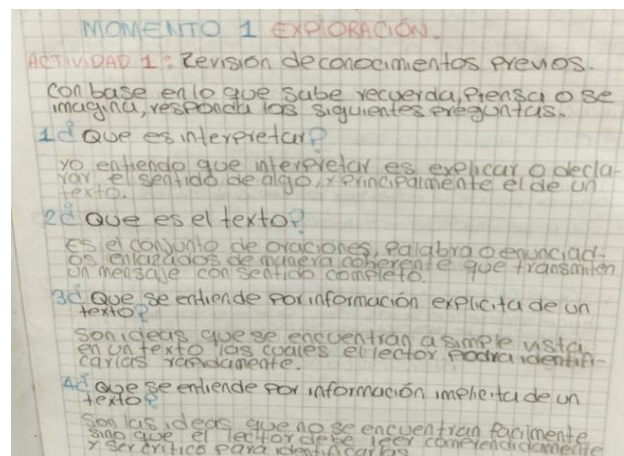 MOMENTO 1 EXPLORACIÓN.
ACTIVIDAD 1: Revisión de conocimientos previos.
con base en lo que sabe recuerda, piensa o se
imagina, responda las siguientes preguntas.
1¿ Que es interpretar?
yo entiendo que interpretar es explicar o decla-
rar el sentido de algo, y principalmente el de un
texto.
2¿ Que es el texto?
Es el conjunto de oraciones, palabra o enunciad-
os enlazados de manera coherente que transmiten
un mensaje con sentido completo.
3¿ Que se entiende por información explicita de un
texto?
son ideas que se encuentran a simple vista
en un texto las cuales el lector podra identifi-
carlas rapidamente.
4¿ Que se entiende por información implicita de un
texto?
Son las ideas que no se encuentran facilmente
sino que el lector debe leer comprendidamente
y ser critico para identificarlas